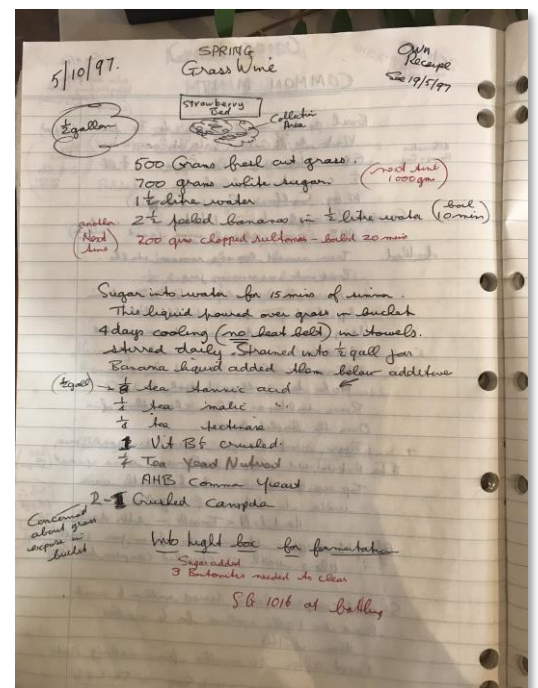 5/10/97.
SPRING
Grass Wine
Own
Receipe
See 19/5/97
½ gallon
Strawberry
Bed
Collection
Area
500 Grams fresh cut grass.
700 grams white sugar.
(next time
1000 gms)
1½ litre water
2½ peeled bananas in ½ litre water (boil
10 min)
another
(Next
time)
200 gms chopped sultanas - boiled 20 mins
Sugar into water for 15 mins of simmer.
This liquid poured over grass in bucket
4 days cooling (no heat belt) in towels.
stirred daily. Strained into ½ gall jar
Banana liquid added then below additive
(½ gall) → tea tannic acid
¼ tea malic "
tea pectinase
1 Vit B1 crushed.
Tea Yeast Nutrient
AHB Comma Yeast
2-1 Crushed Campda
Concerned
about grass
expose in
bucket
Into light box for fermentation
Sugar added
3 Bentonites needed to clear
SG 1016 at bottling